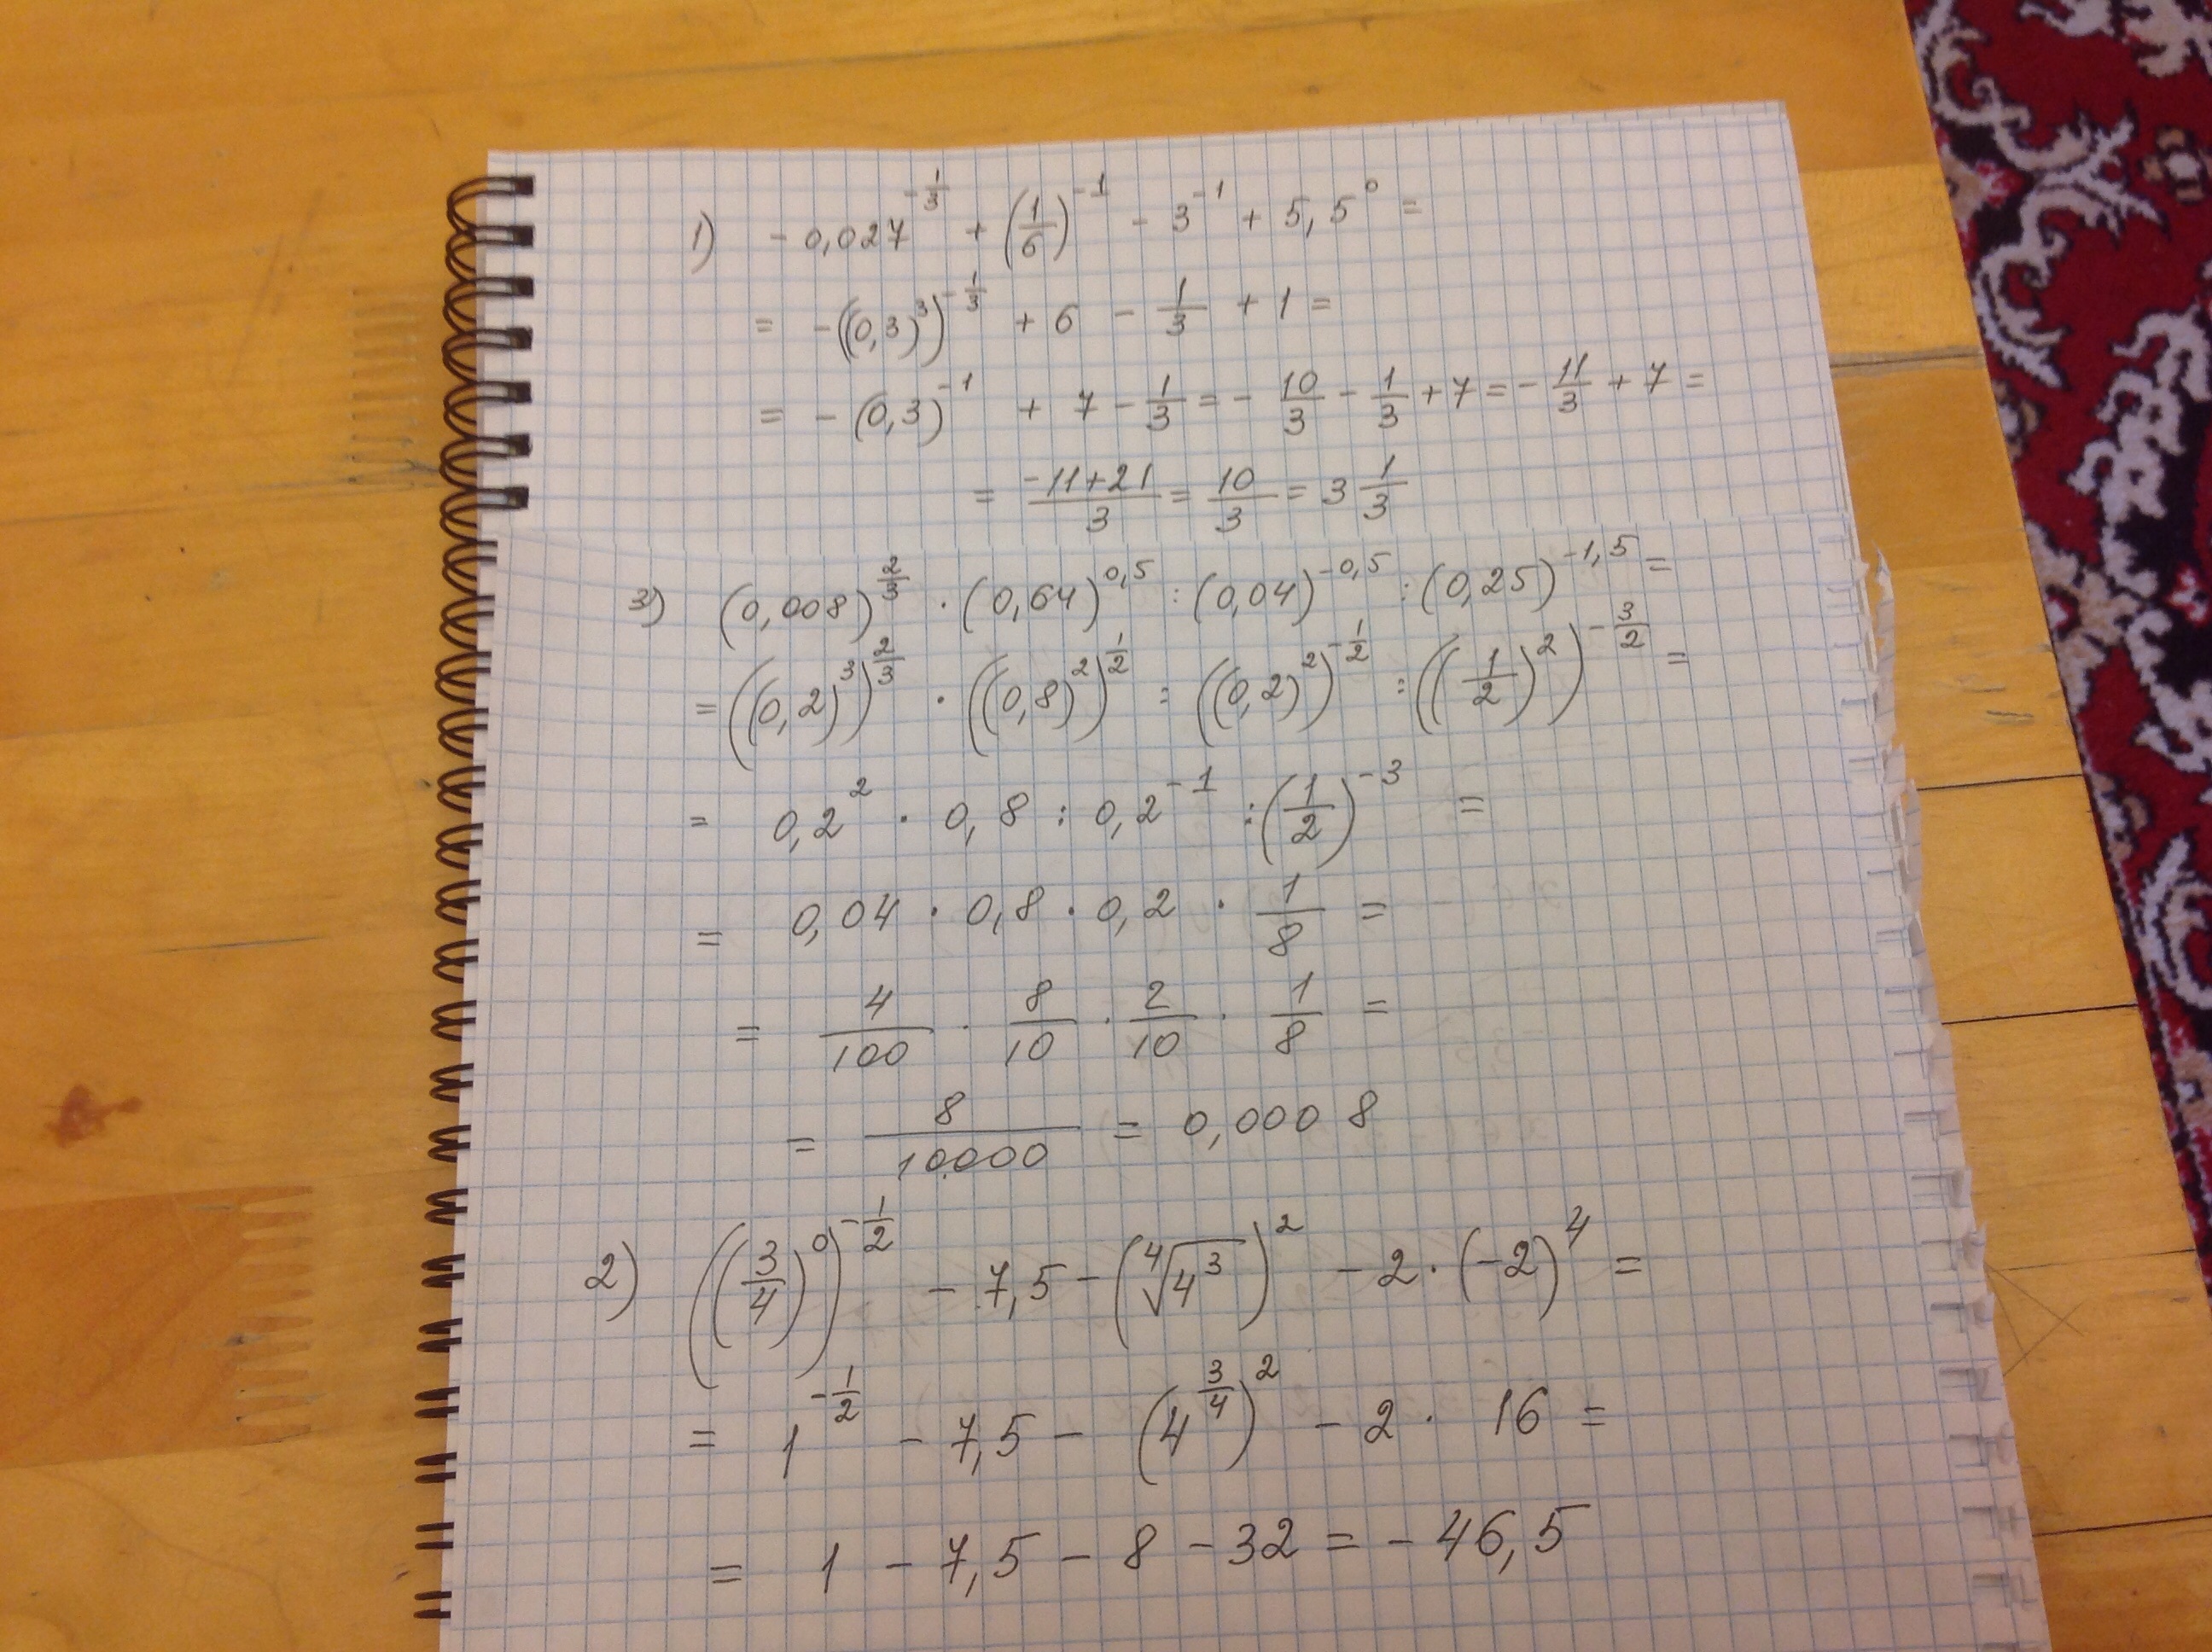 1) - 0,027^(-1/3) + (1/6)^(-1) - 3^(-1) + 5,5^0 =
= -((0,3)^3)^(-1/3) + 6 - 1/3 + 1 =
= -(0,3)^(-1) + 7 - 1/3 = - 10/3 - 1/3 + 7 = - 11/3 + 7 =
= (-11+21)/3 = 10/3 = 3 1/3
3) (0,008)^(2/3) · (0,64)^(0,5) : (0,04)^(-0,5) : (0,25)^(-1,5) =
= ((0,2)^3)^(2/3) · ((0,8)^2)^(1/2) : ((0,2)^2)^(-1/2) : ((1/2)^2)^(-3/2) =
= 0,2^2 · 0,8 : 0,2^(-1) : (1/2)^(-3) =
= 0,04 · 0,8 · 0,2 · 1/8 =
= 4/100 · 8/10 · 2/10 · 1/8 =
= 8/10000 = 0,0008
2) ((3/4)^0)^(-1/2) - 7,5 - (∜4^3)^2 - 2 · (-2)^4 =
= 1^(-1/2) - 7,5 - (4^(3/4))^2 - 2 · 16 =
= 1 - 7,5 - 8 - 32 = - 46,5